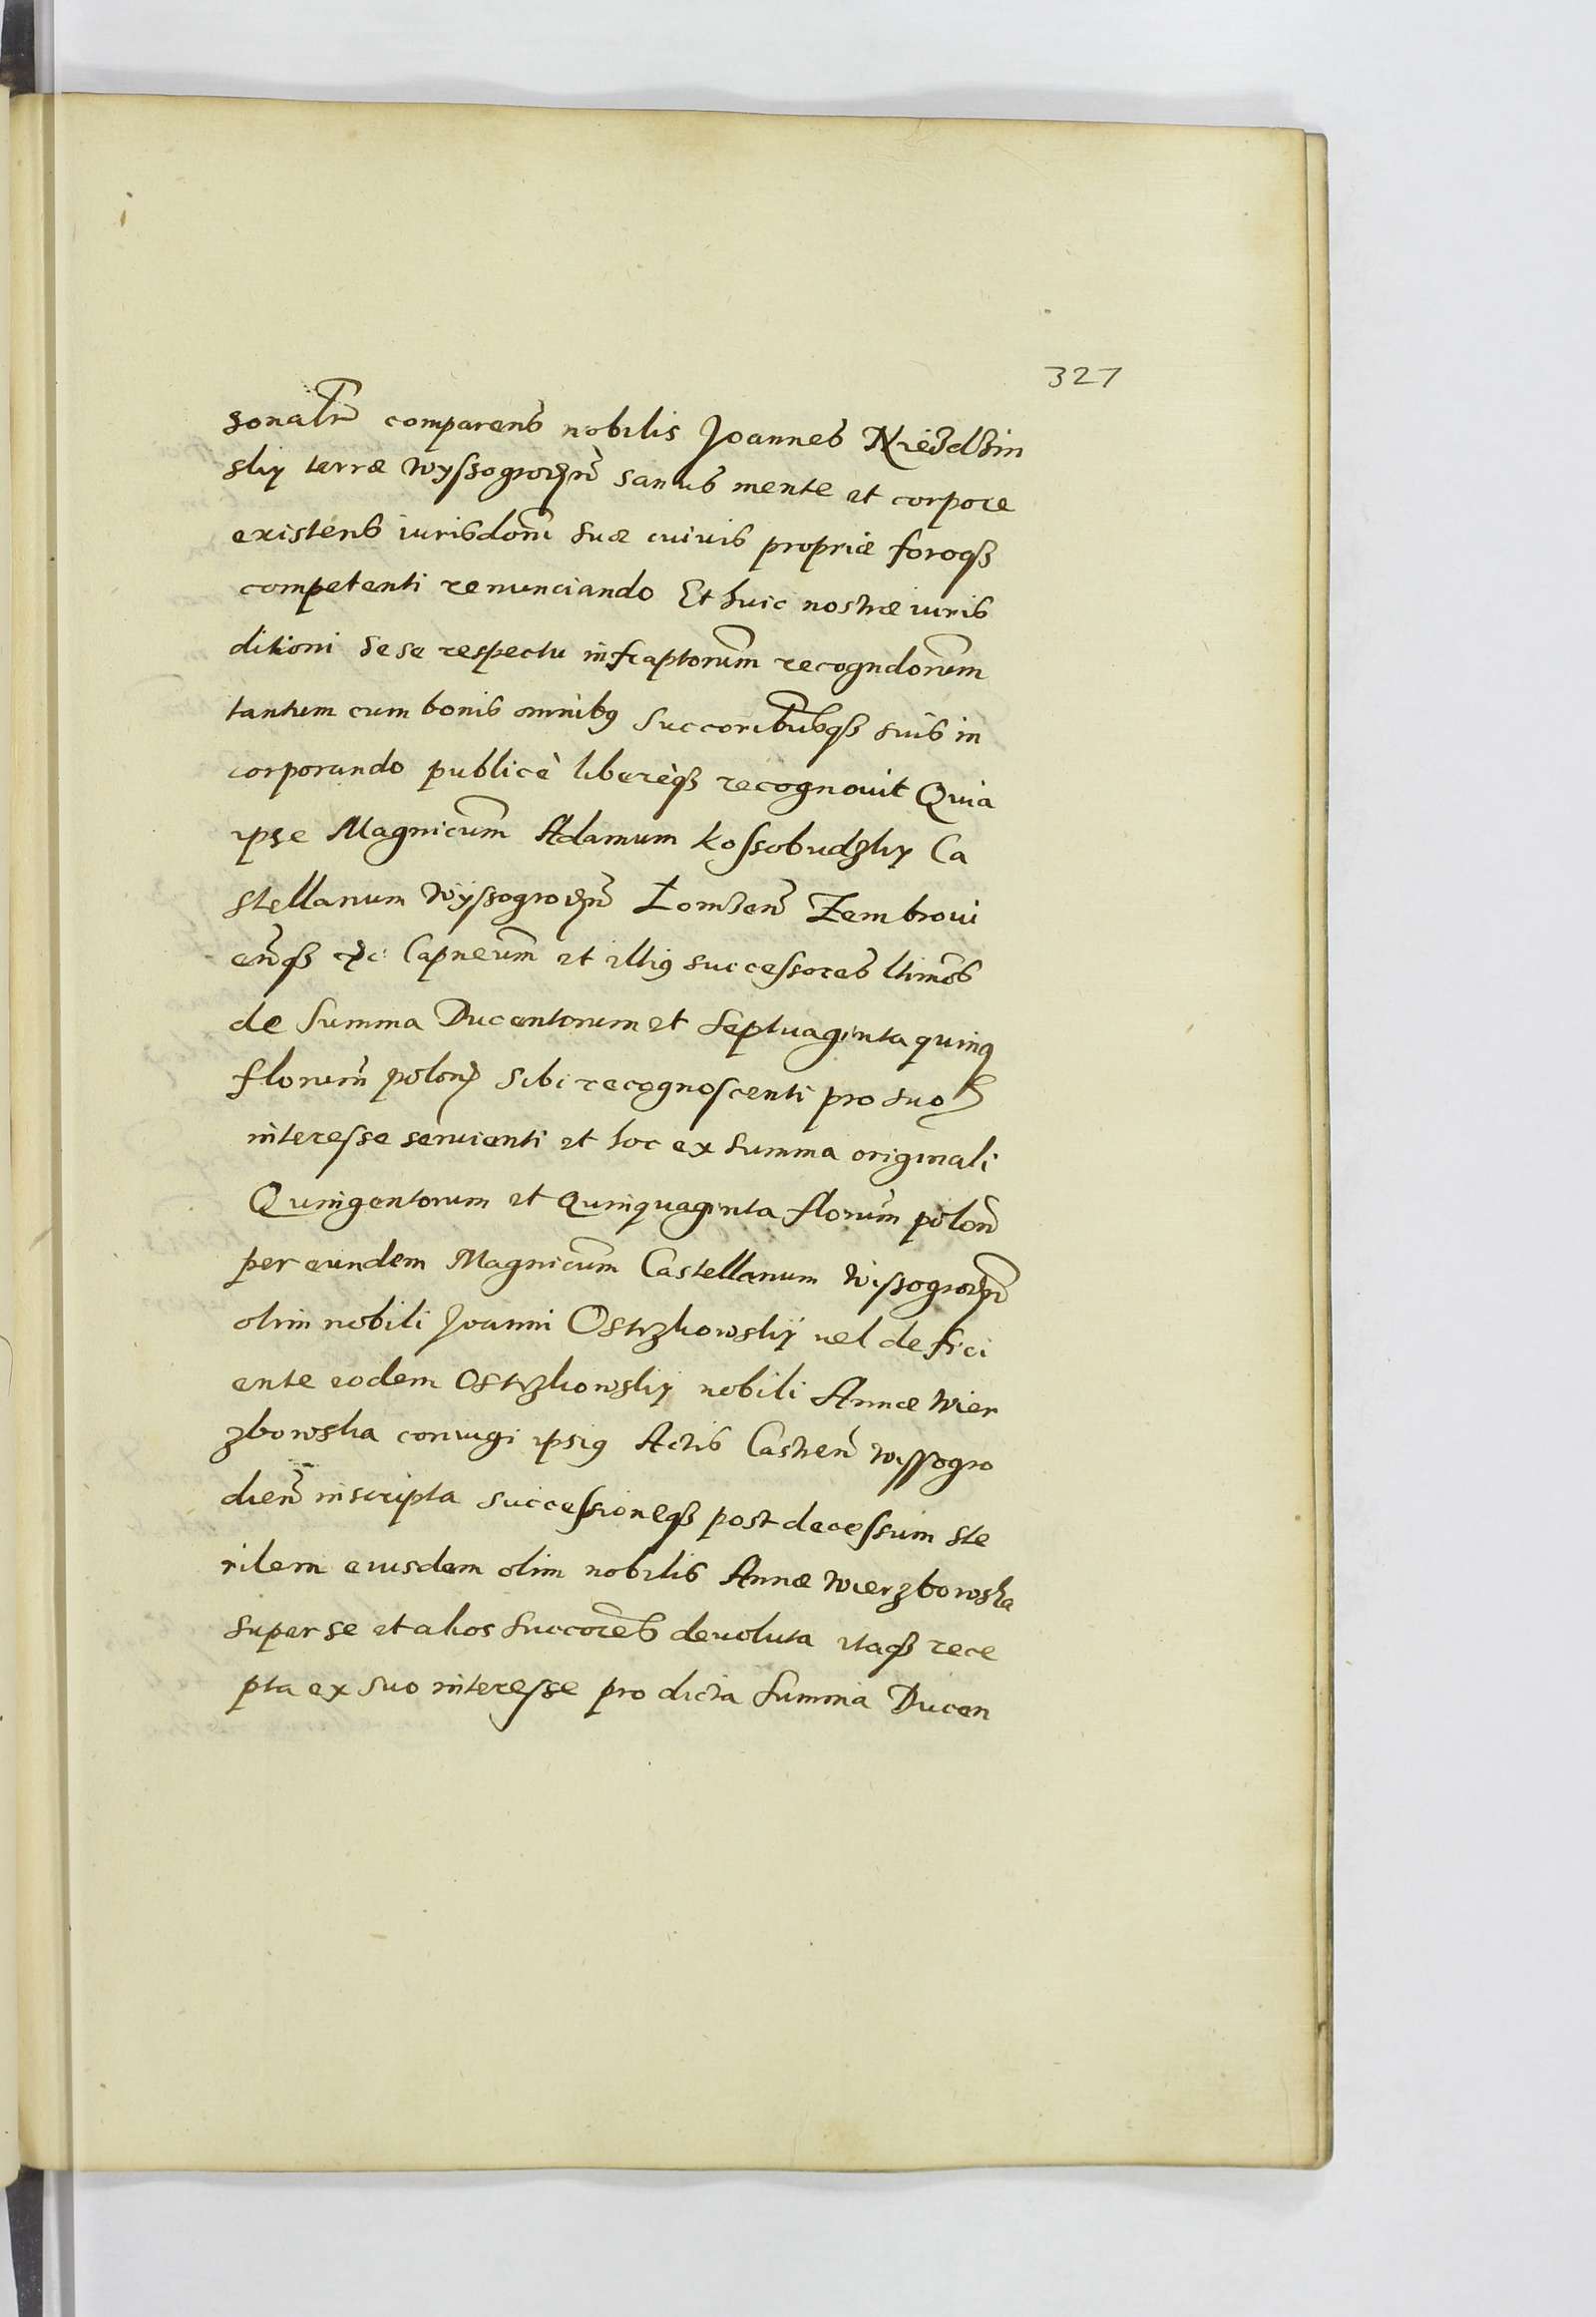 327
sonalr̃ comparens nobilis Joannes Niezdzin
sky terræ Wyssogrodzn̄ sanus mente et corpore
existens iurisdoni suæ cuiuis propriæ foroq3
competenti renunciando Et huic nostræ iuris
ditioni sese respectu infraptorum recogndorum
tantum cum bonis omnibq succoribusq3 suis in
corporando publicè liberèq3 recognouit Quia
ipse Magnicum Adamum Kossobudzky Ca
stellanum Wyssogrodzn̄ Łomzen̄ Zembroui
en̄q3 etc Capneum et illiq successores ltimos
de Summa Ducentorum et Septuaginta quinq
florum polon̄ sibi recognoscenti pro suo
interesse seruienti et hoc ex Summa originali
Quingentorum et Quinquaginta florum polon̄
per eundem Magnicum Castellanum Wissogrodzn̄
olim nobili Joanni Ostrzkowskÿ uel defici
ente eodem Ostrzkowsky nobili Annæ Wier
zbowska coniugi ipsiq Actis Castren̄ Wyssogro
dien̄ inscripta successioneq3 post decessum ste
rilem eiusdem olim nobilis Annæ Wierzbowska
super se et alios succores deuoluta itaq3 rece
pta ex suo interesse pro dicta Summa Ducen